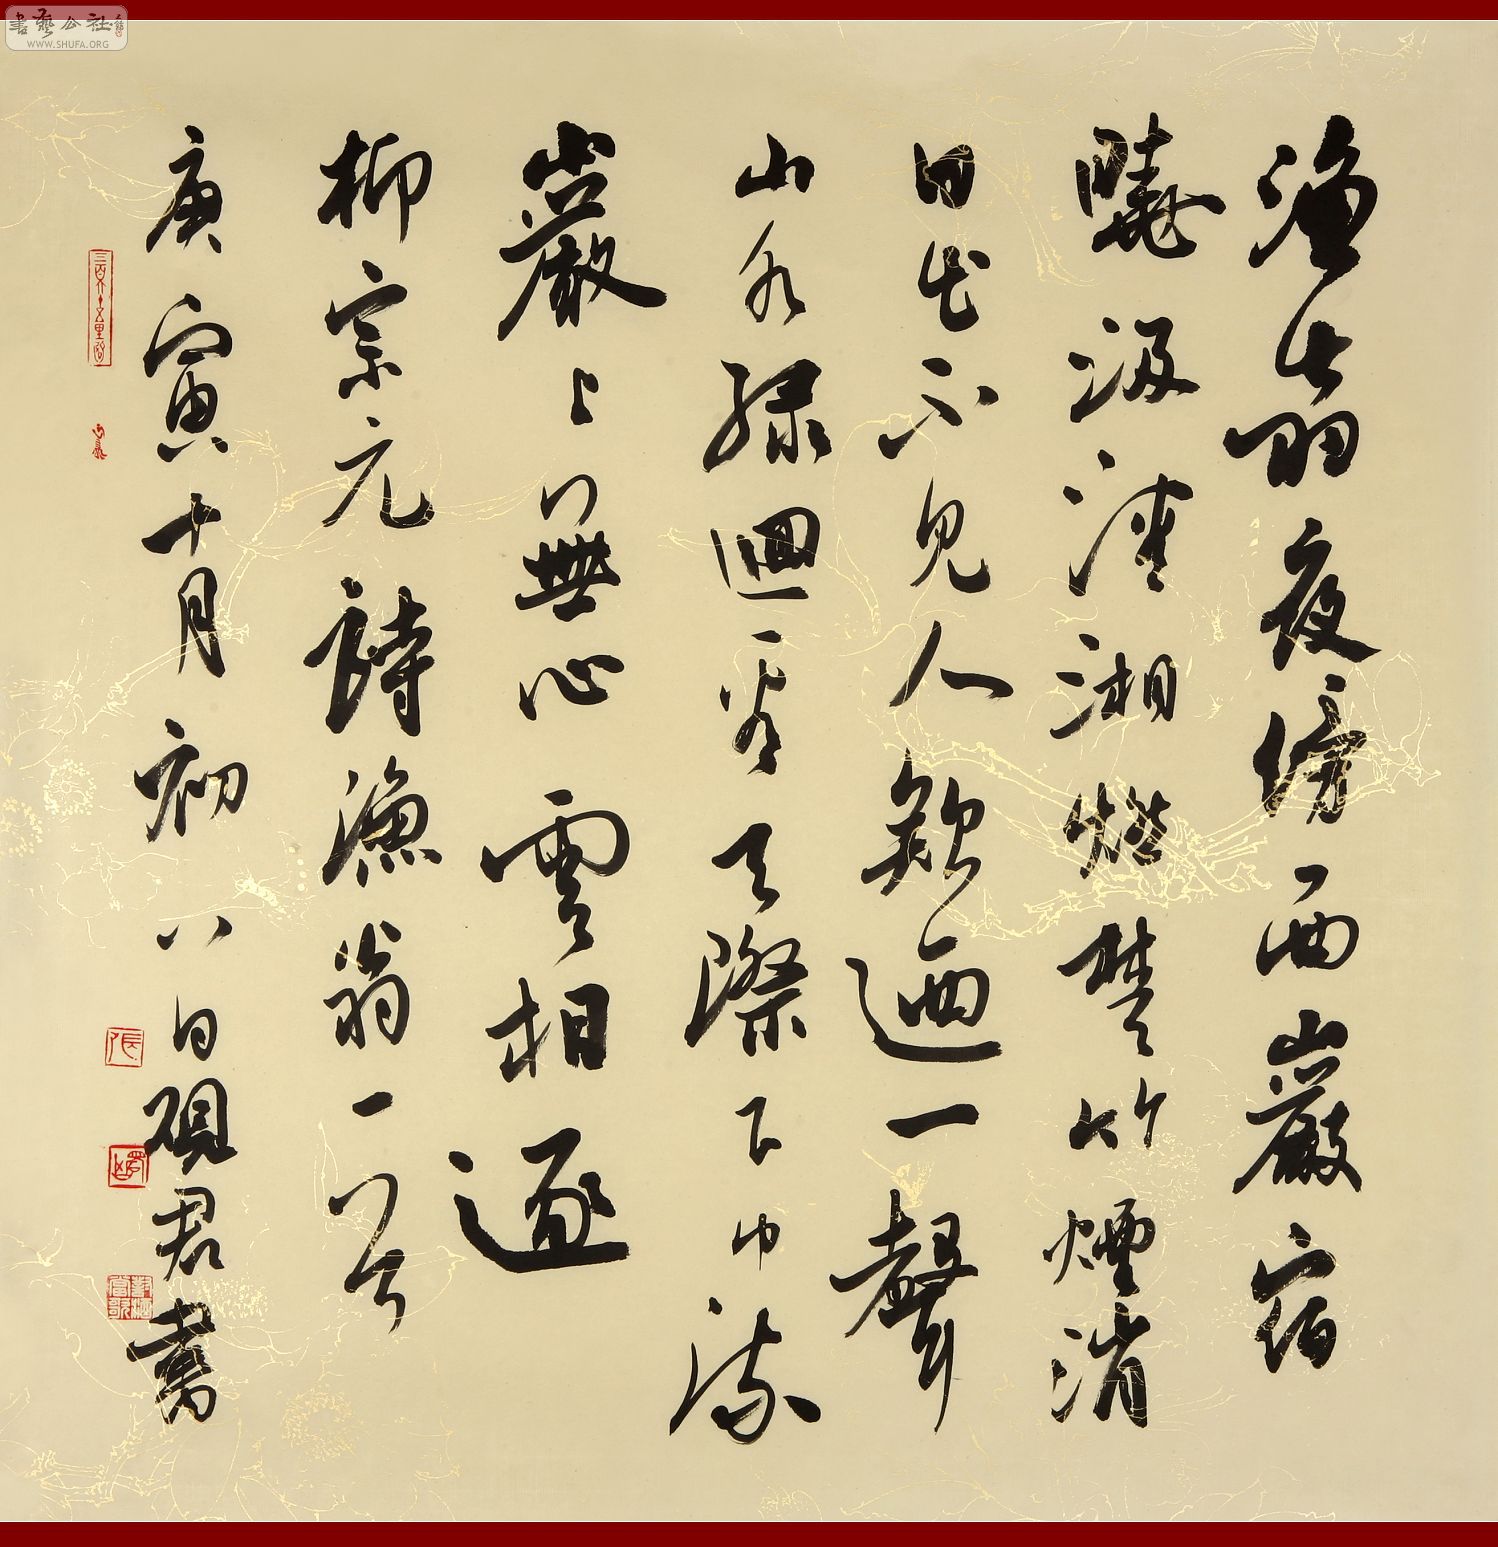 漁翁夜傍西巖宿
曉汲清湘燃楚竹煙消
日出不見人欸迺一聲
山水綠迴看天際下中流
巖上無心雲相逐
柳宗元詩漁翁一首
庚寅十月初八日硯君書
張
書藝公社
WWW.SHUFA.ORG